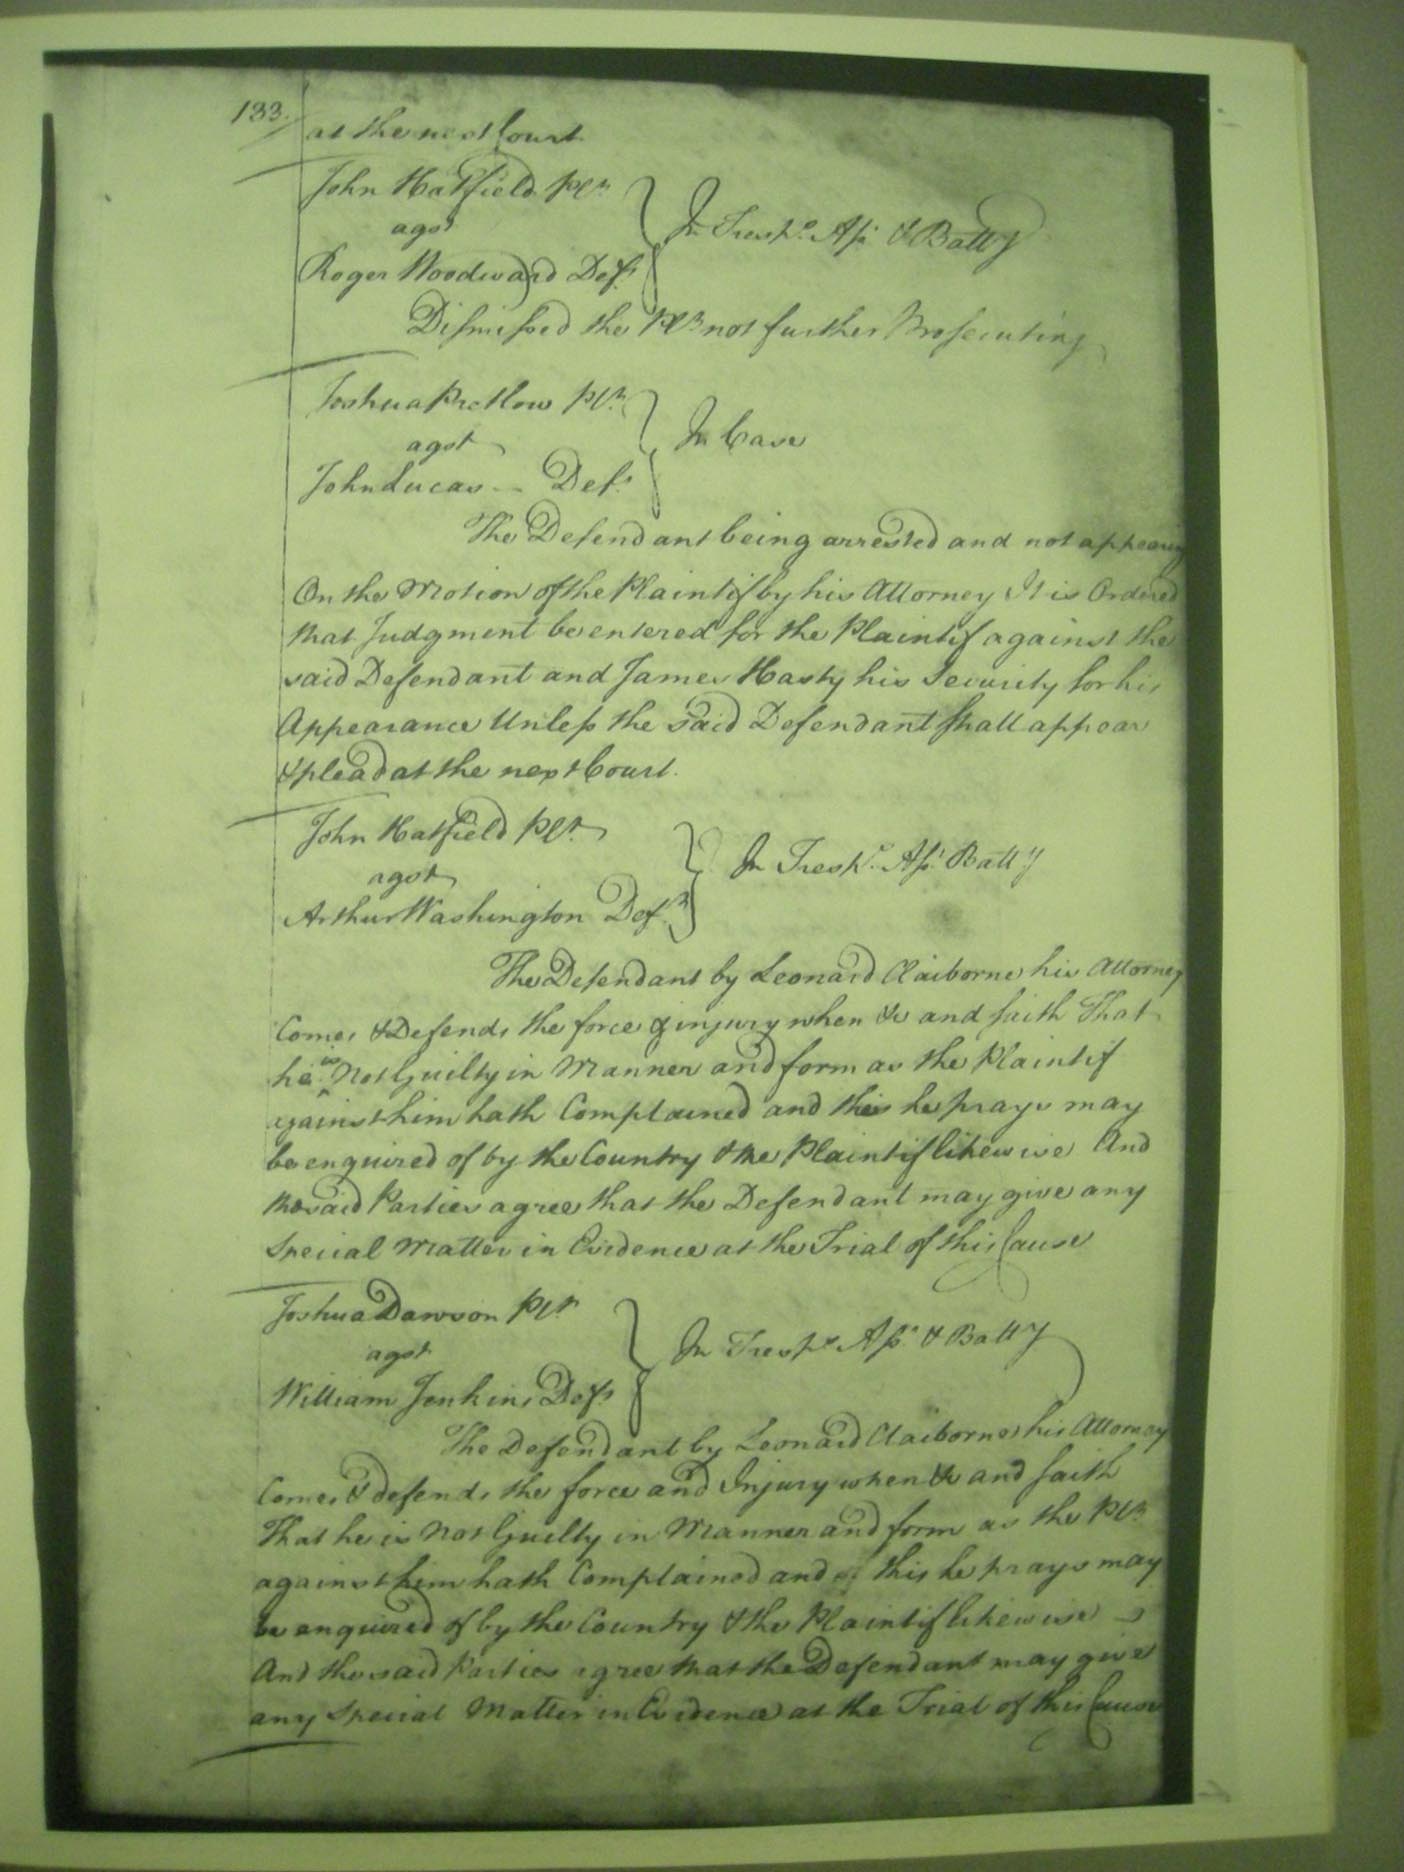 133.
at the next Court
John Hatfield Plt
agst
Roger Woodward Deft
In Tresps Asst & Batty
Dismissed the Plt not further Prosecuting
Joshua Pretlow Plt
agst
John Lucas -- Deft
In Case
The Defendant being arrested and not appearing
On the Motion of the Plaintif by his Attorney It is Ordered
that Judgment be entered for the Plaintif against the
said Defendant and James Hasty his Security for his
Appearance Unless the said Defendant shall appear
& plead at the next Court.
John Hatfield Plt
agst
Arthur Washington Deft
In Tresps Asst Batty
The Defendant by Leonard Claiborne his Attorney
Comes & Defends the force & injury when &c and saith That
he is Not Guilty in Manner and form as the Plaintif
against him hath Complained and this he prays may
be enquired of by the Country & the Plaintif likewise And
the said Parties agree that the Defendant may give any
Special Matter in Evidence at the Trial of this Cause
Joshua Dawson Plt
agst
William Jenkins Deft
In Tresps Asst & Batty
The Defendant by Leonard Claiborne his Attorney
Comes & defends the force and Injury when &c and saith
That he is Not Guilty in Manner and form as the Plt
against him hath Complained and this he prays may
be enquired of by the Country & the Plaintif likewise
And the said Parties agree that the Defendant may give
any Special Matter in Evidence at the Trial of this Cause